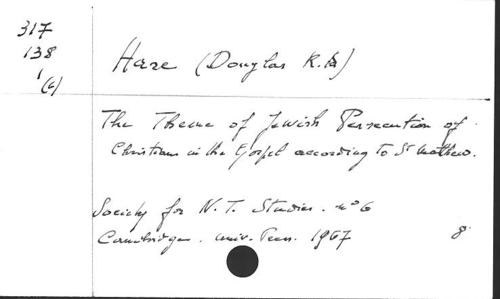 317
138
1
(6)
Hare (Douglas R.A)
The Theme of Jewish Persecution of
Christians in the Gospel according to St Mathew.
Society for N.T. Studies. no 6
Cambridge. Univ. Press. 1967 8